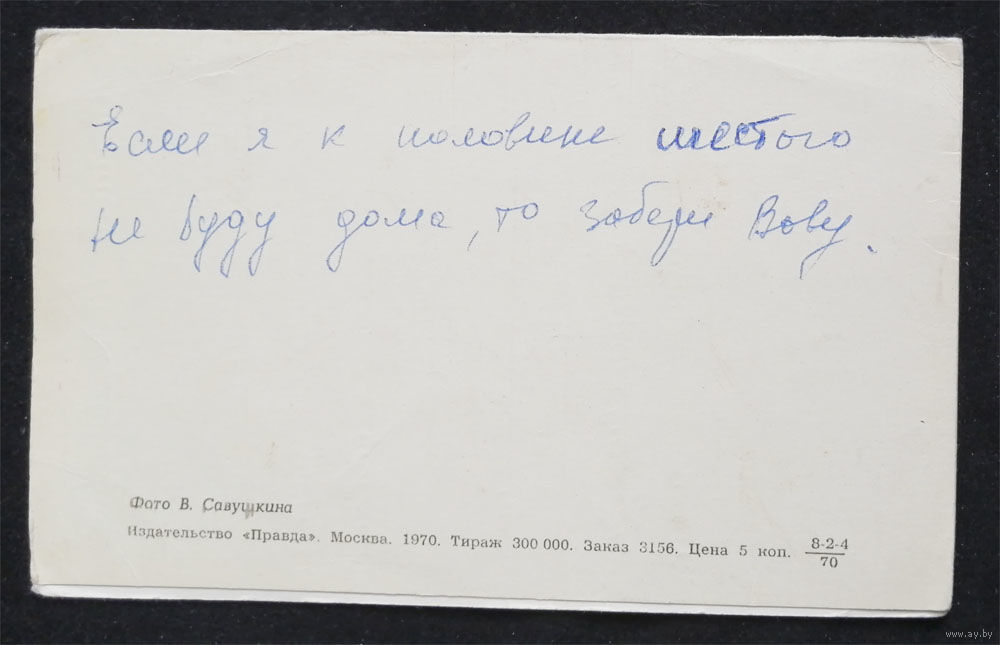 Если я к половине шестого
не буду дома, то забери Вову.
Фото В. Савушкина
Издательство «Правда». Москва. 1970. Тираж 300 000. Заказ 3156. Цена 5 коп. 8-2-4
70
www.ay.by